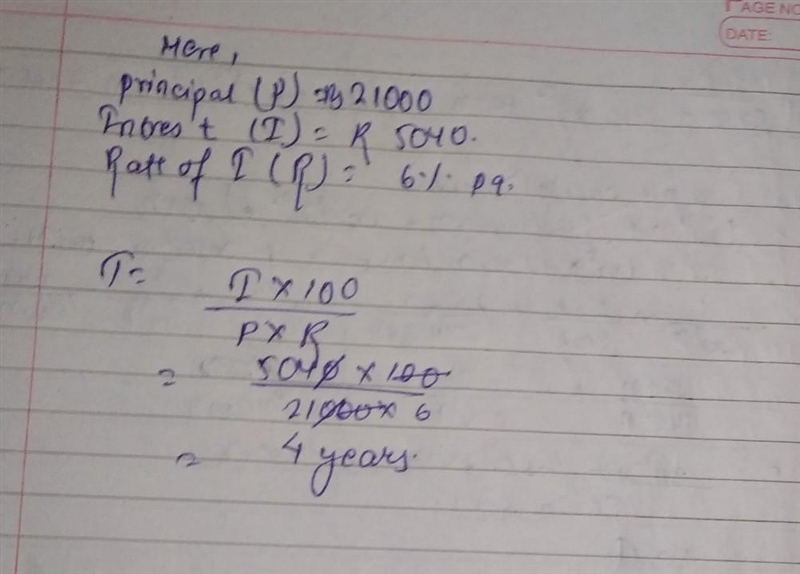 PAGE NO
DATE:
Here,
principal (P) = Rs 21000
Intres t (I) = R 5040.
Rate of I (R) = 6% pa.
T =
I × 100
P × R
= 5040 × 100
21000 × 6
= 4 years.